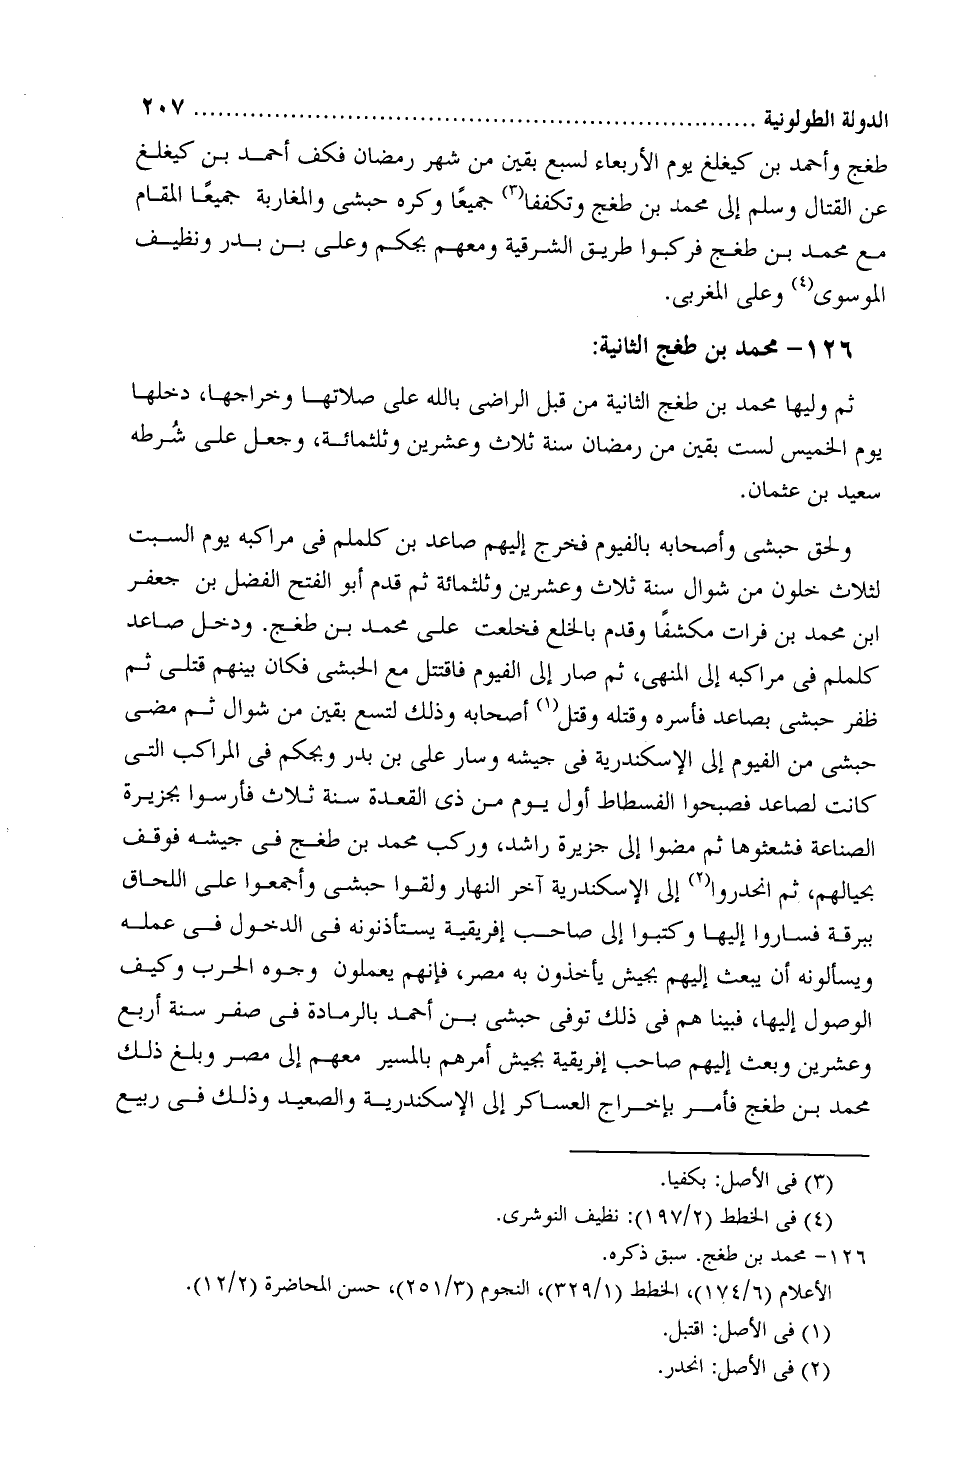 الدولة الطولونية ................................................................ ٢٠٧
طغج وأحمد بن كيغلغ يوم الأربعاء لسبع بقين من شهر رمضان فكف أحمد بن كيغلغ
عن القتال وسلم إلى محمد بن طغج وتكففا(٣) جميعًا وكره حبشى والمغاربة جميعًا المقام
مع محمد بن طغج فركبوا طريق الشرقية ومعهم بجكم وعلى بن بدر ونظيف
الموسوى(٤) وعلى المغربى.
١٢٦- محمد بن طغج الثانية:
ثم وليها محمد بن طغج الثانية من قبل الراضى بالله على صلاتها وخراجها، دخلها
يوم الخميس لست بقين من رمضان سنة ثلاث وعشرين وثلثمائة، وجعل على شُرطه
سعيد بن عثمان.
ولحق حبشى وأصحابه بالفيوم فخرج إليهم صاعد بن كلملم فى مراكبه يوم السبت
لثلاث خلون من شوال سنة ثلاث وعشرين وثلثمائة ثم قدم أبو الفتح الفضل بن جعفر
ابن محمد بن فرات مكشفًا وقدم بالخلع فخلعت على محمد بن طغج. ودخل صاعد
كلملم فى مراكبه إلى المنهى، ثم صار إلى الفيوم فاقتتل مع الحبشى فكان بينهم قتلى ثم
ظفر حبشى بصاعد فأسره وقتله وقتل(١) أصحابه وذلك لتسع بقين من شوال ثم مضى
حبشى من الفيوم إلى الإسكندرية فى جيشه وسار على بن بدر وبجكم فى المراكب التى
كانت لصاعد فصبحوا الفسطاط أول يوم من ذى القعدة سنة ثلاث فأرسوا بجزيرة
الصناعة فشعثوها ثم مضوا إلى جزيرة راشد، وركب محمد بن طغج فى جيشه فوقف
بحيالهم، ثم انحدروا(٢) إلى الإسكندرية آخر النهار ولقوا حبشى وأجمعوا على اللحاق
ببرقة فساروا إليها وكتبوا إلى صاحب إفريقية يستأذنونه فى الدخول فى عمله
ويسألونه أن يبعث إليهم بجيش يأخذون به مصر، فإنهم يعملون وجوه الحرب وكيف
الوصول إليها، فبينا هم فى ذلك توفى حبشى بن أحمد بالرمادة فى صفر سنة أربع
وعشرين وبعث إليهم صاحب إفريقية بجيش أمرهم بالمسير معهم إلى مصر وبلغ ذلك
محمد بن طغج فأمر بإخراج العساكر إلى الإسكندرية والصعيد وذلك فى ربيع
(٣) فى الأصل: بكفيا.
(٤) فى الخطط (١٩٧/٢): نظيف النوشرى.
١٢٦- محمد بن طغج. سبق ذكره.
الأعلام (١٧٤/٦)، الخطط (٣٢٩/١)، النجوم (٢٥١/٣)، حسن المحاضرة (١٢/٢).
(١) فى الأصل: اقتبل.
(٢) فى الأصل: انحدر.